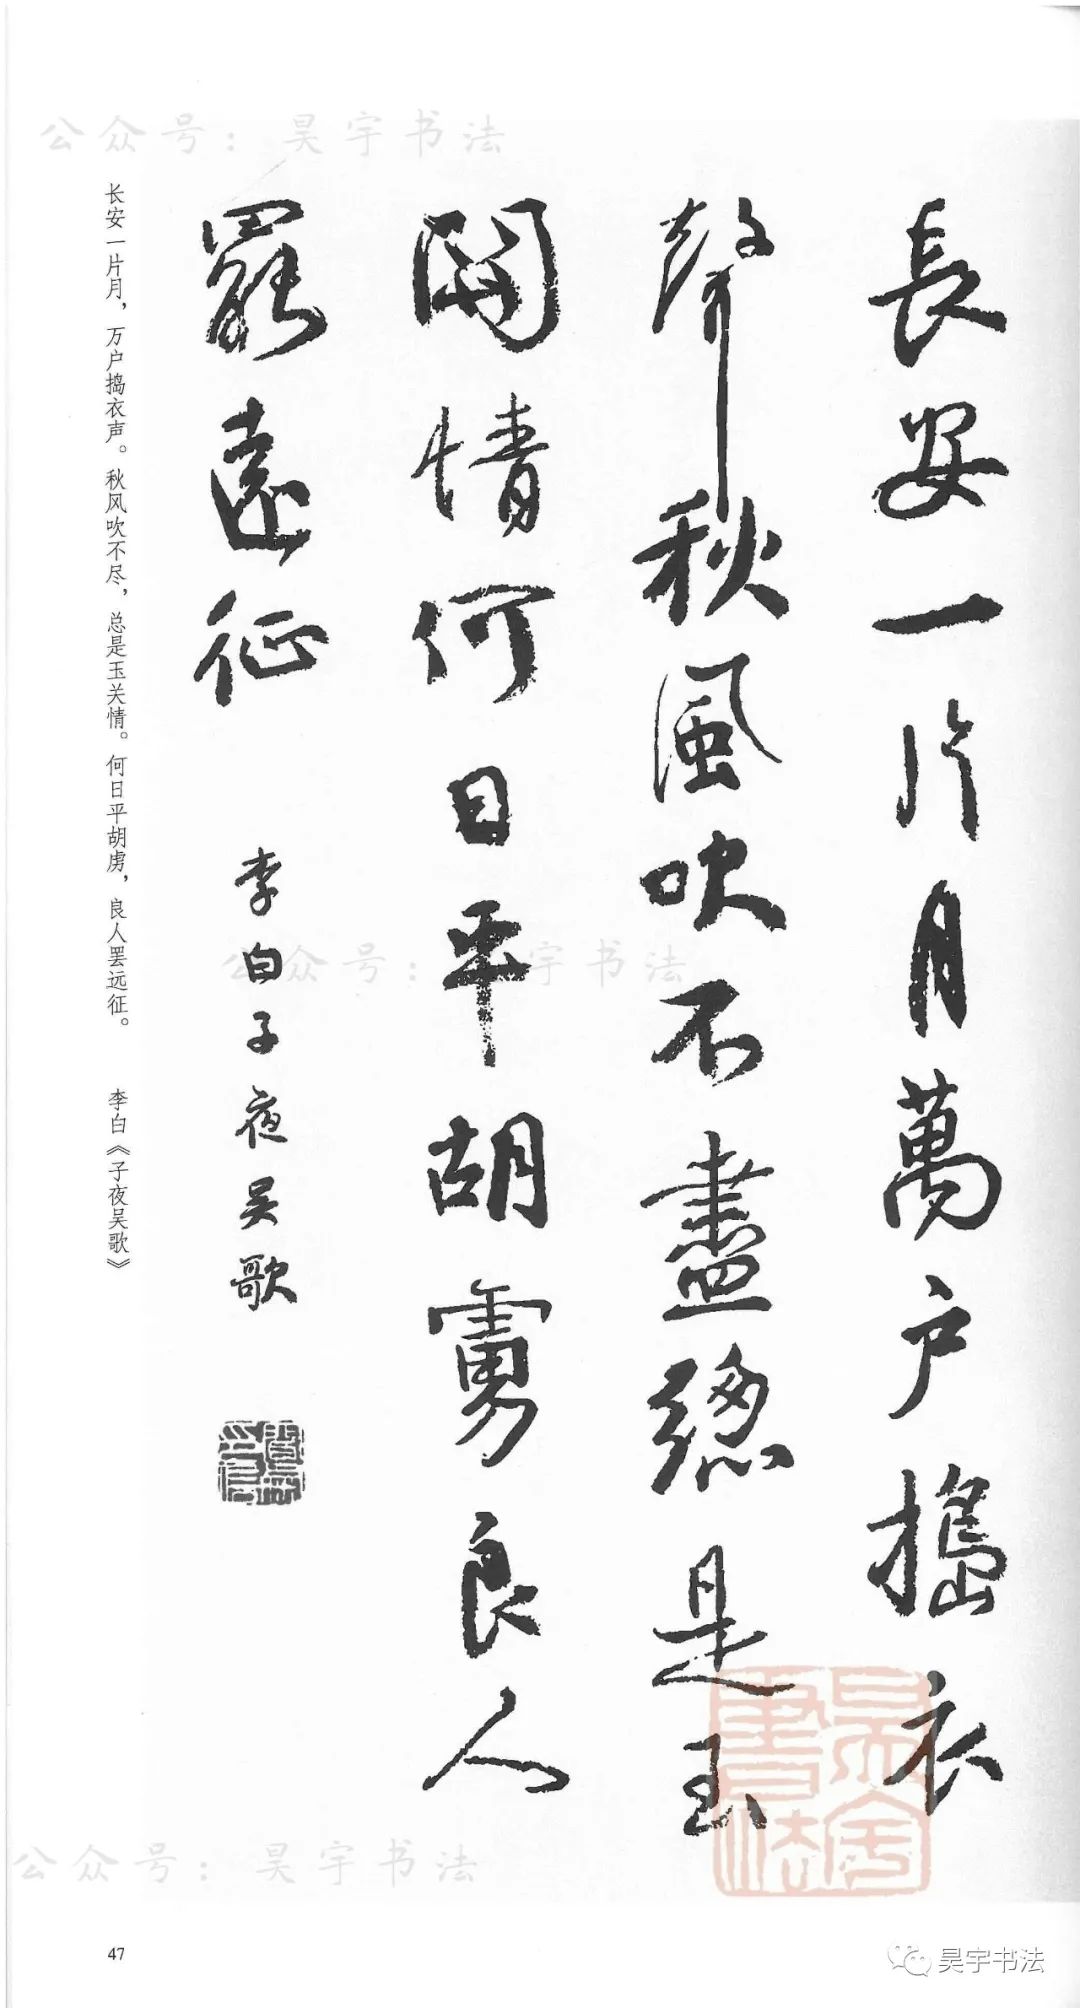 公众号：昊宇书法
長安一片月萬户擣衣
聲秋風吹不盡總是玉
關情何日平胡虜良人
罷遠征
李白子夜吴歌
长安一片月，万户捣衣声。秋风吹不尽，总是玉关情。何日平胡虏，良人罢远征。 李白《子夜吴歌》
公众号：昊宇书法
昊宇書法
公众号：昊宇书法
47
昊宇书法